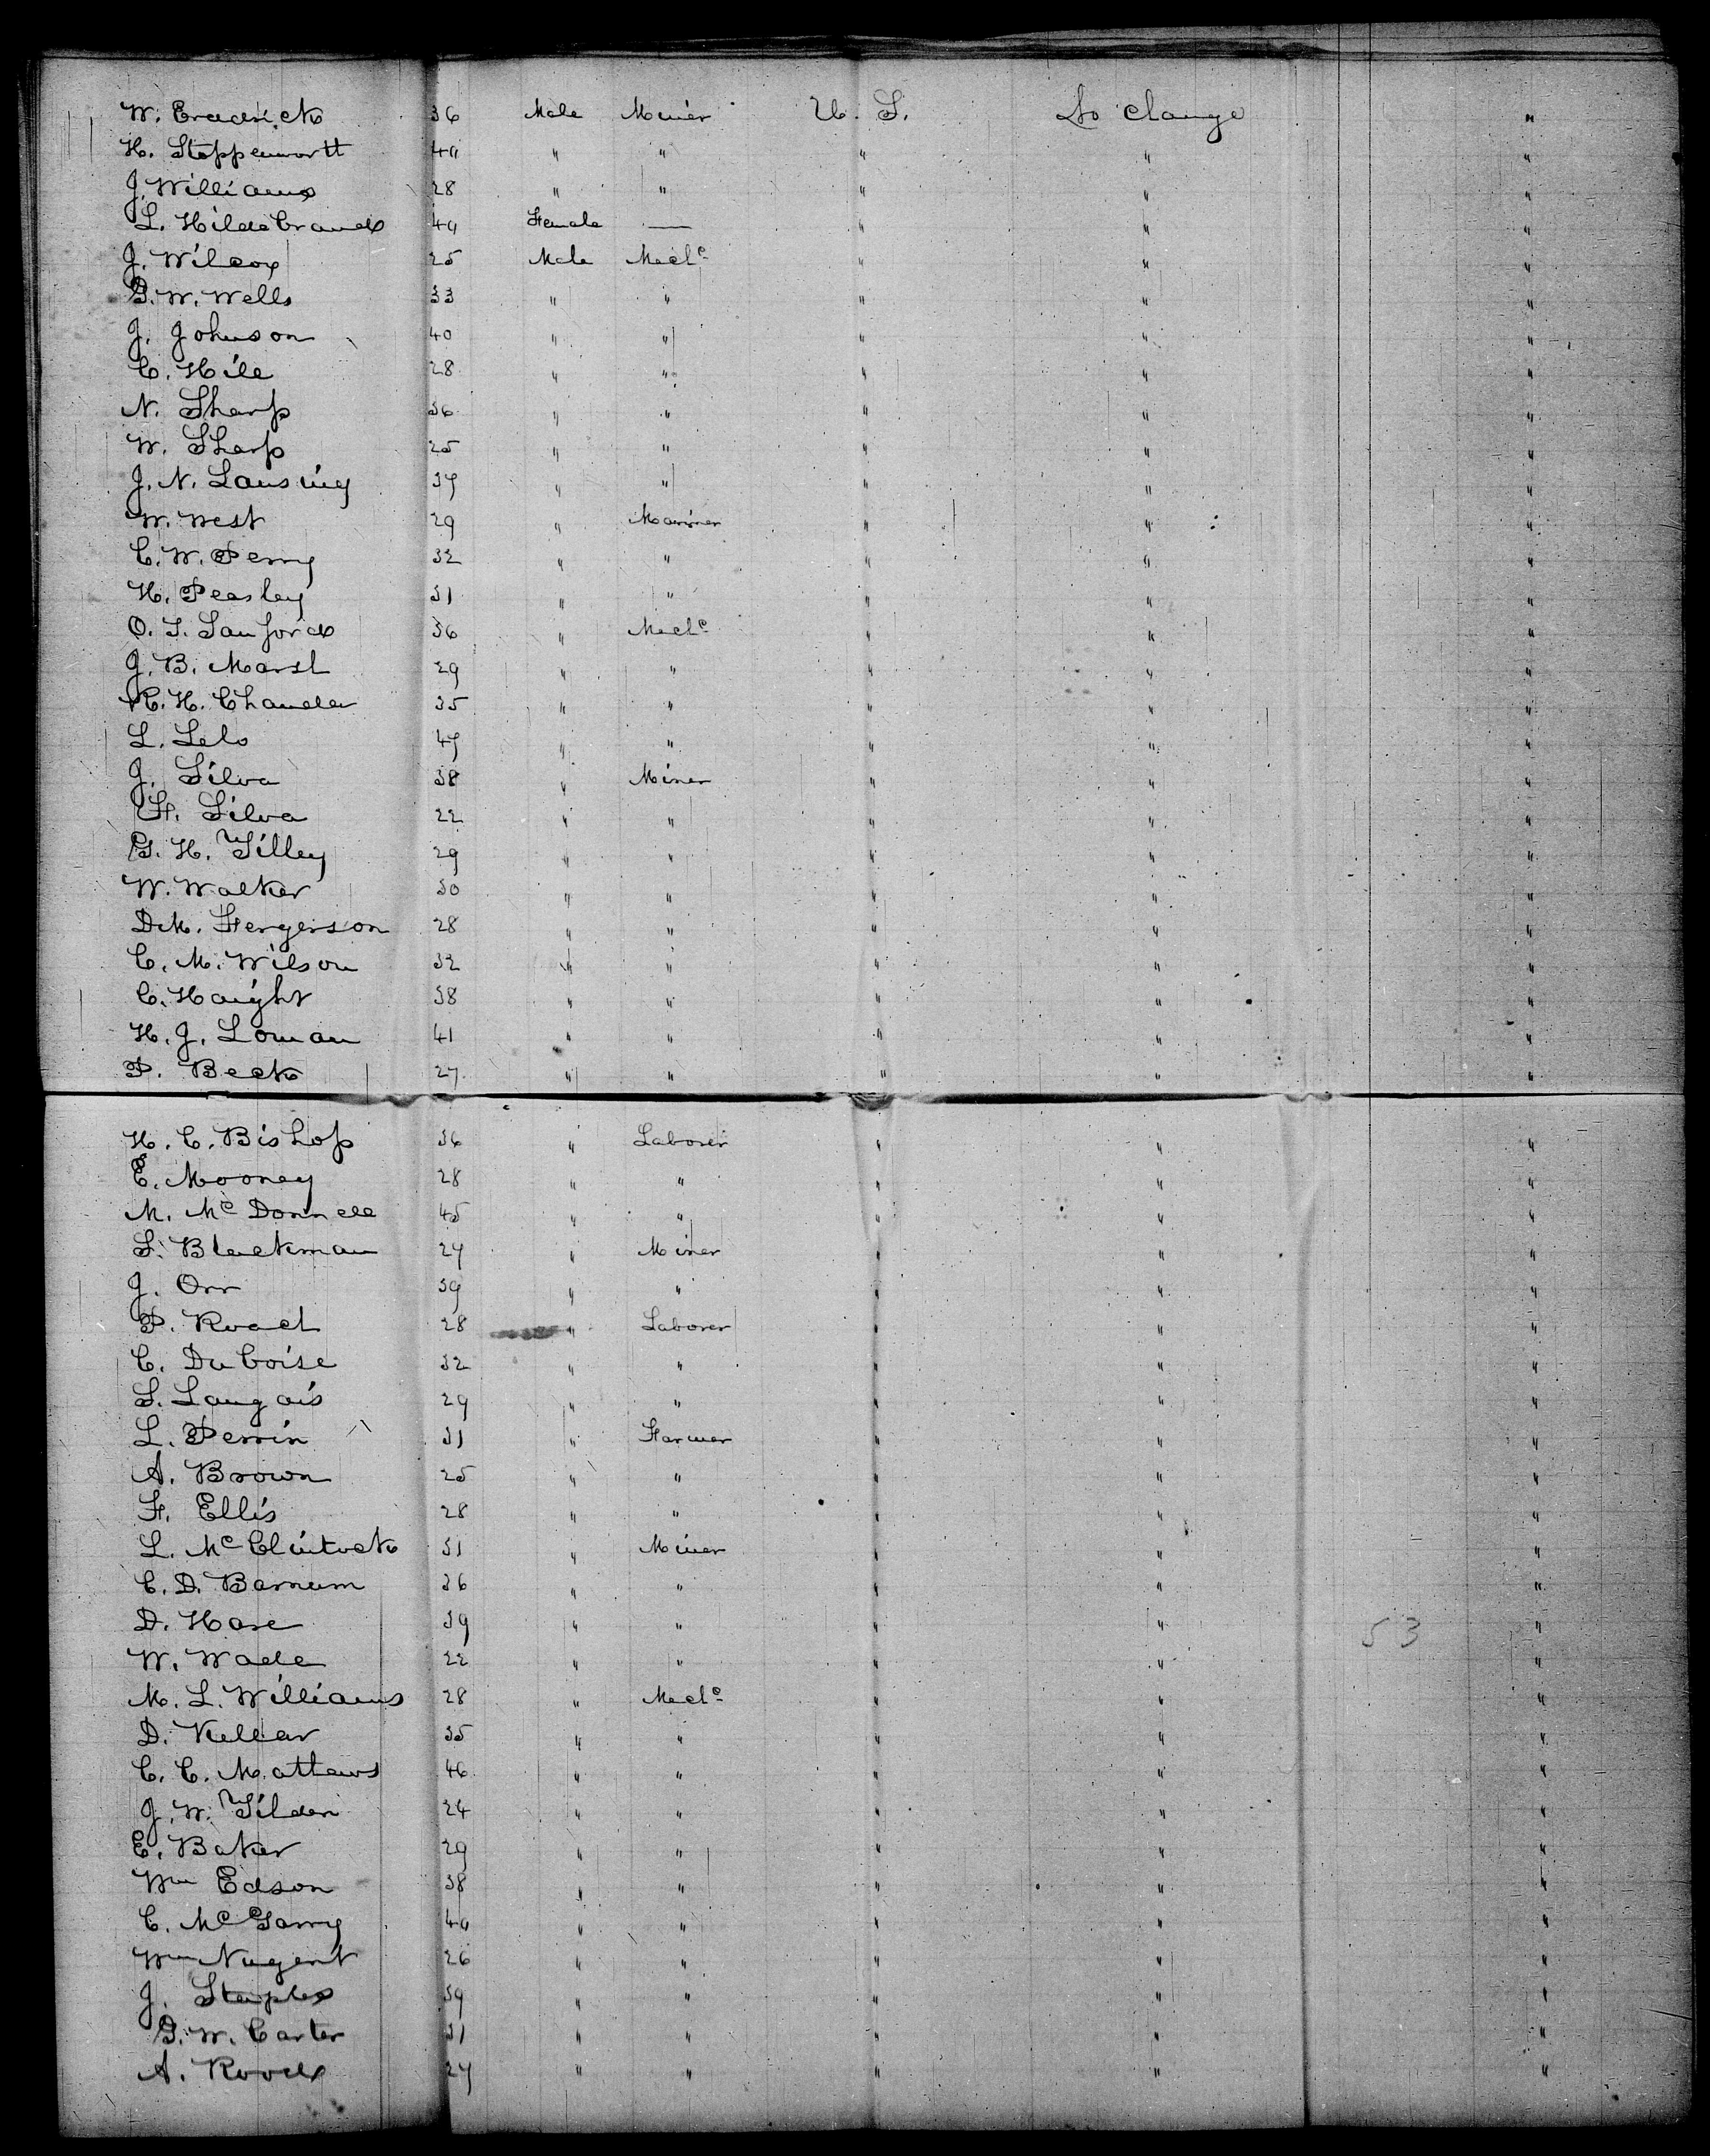 W. Bradrick 36 Male Miner U. S. No Change "
H. Stoppenwortt " " " " "
J. Williams 28 " " " " "
L. Hildebrand Female — " "
J. Wilcox 25 Male Mech^c " " "
G. W. Wells 33 " " " " "
J. Johnson 40 " " " " "
C. Hill 28 " " " " "
N. Sharp 36 " " " " "
W. Sharp 25 " " " " "
J. N. Lansing 37 " " " " "
W. West 29 " Mariner " " "
C. W. Perry 32 " " " " "
H. Peasley 31 " " " " "
O. S. Sanford 36 " Mech^c " " "
J. B. Marsh 29 " " " " "
R. H. Chandler 35 " " " " "
L. Lelo 47 " " " " "
J. Silva 38 " Miner " " "
F. Silva 22 " " " " "
G. H. Tilley 29 " " " " "
W. Walker 30 " " " " "
D. M. Fergerson 28 " " " " "
C. M. Wilson 32 " " " " "
C. Haight 38 " " " " "
H. J. Loman 41 " " " " "
P. Beck 27 " " " " "
H. C. Bishop 36 " Laborer " " "
E. Mooney 28 " " " " "
M. McDonnell 45 " " " " "
S. Blackman 27 " Miner " " "
J. Orr 39 " " " " "
P. Roach 28 " Laborer " " "
C. Duboise 32 " " " " "
S. Langois 29 " " " " "
L. Perrin 31 " Farmer " " "
A. Brown 25 " " " " "
F. Ellis 28 " " " " "
L. McClintock 31 " Miner " " "
C. D. Barnum 36 " " " " "
D. Hare 39 " " " " 53 "
W. Wade 22 " " " " "
M. L. Williams 28 " Mech^c " " "
D. Kellar 35 " " " " "
C. C. Mathews 46 " " " " "
J. W. Tilden 24 " " " " "
E. Baker 29 " " " " "
Wm Edson 38 " " " " "
C. McGarry " " " " "
Wm Nugent 26 " " " " "
J. Staples 39 " " " " "
G. W. Carter 31 " " " " "
A. Rood 27 " " " " "